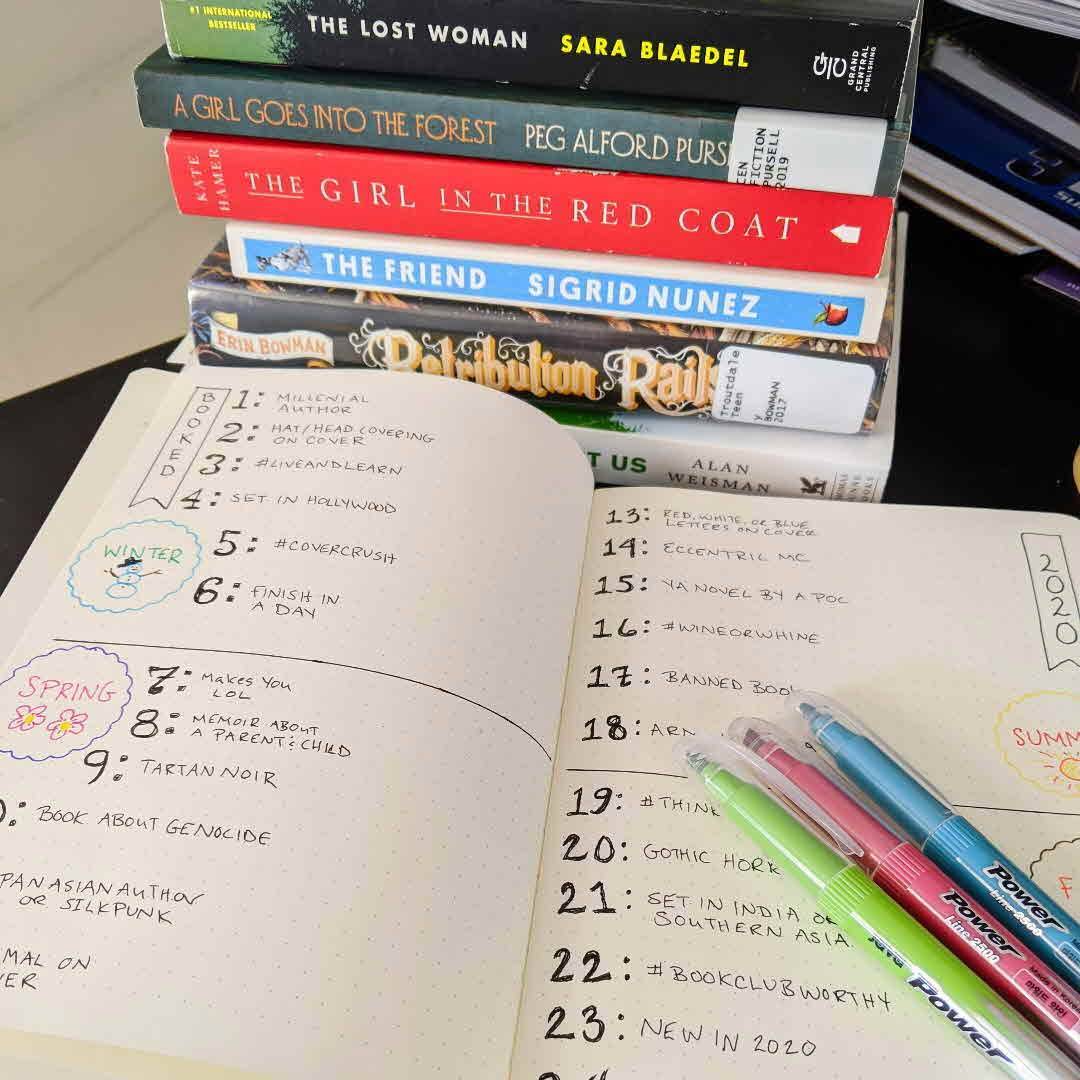 #1 INTERNATIONAL
BESTSELLER
THE LOST WOMAN SARA BLAEDEL
GRAND
CENTRAL
PUBLISHING
A GIRL GOES INTO THE FOREST PEG ALFORD PURS
FICTION
PURSELL
2019
KATE
HAMER
THE GIRL IN THE RED COAT
THE FRIEND SIGRID NUNEZ
ERIN BOWMAN
Retribution Rails
Troutdale
Teen
Y
BOWMAN
2017
T US
ALAN
WEISMAN
BOOKED
1: MILLENIAL
AUTHOR
2: HAT/HEAD COVERING
ON COVER
3: #LIVEANDLEARN
4: SET IN HOLLYWOOD
WINTER
5: #COVERCRUSH
6: FINISH IN
A DAY
SPRING
7: MAKES YOU
LOL
8: MEMOIR ABOUT
A PARENT & CHILD
9: TARTAN NOIR
: BOOK ABOUT GENOCIDE
PAN ASIAN AUTHOR
OR SILKPUNK
MAL ON
VER
2020
13: RED, WHITE, OR BLUE
LETTERS ON COVER
14: ECCENTRIC MC
15: YA NOVEL BY A POC
16: #WINEORWHINE
17: BANNED BOO
18: ARN
SUMM
19: #THINK
20: GOTHIC HORR
F
21: SET IN INDIA OR
SOUTHERN ASIA
22: #BOOKCLUBWORTHY
23: NEW IN 2020
Power
Line 2500
Power
Line 2500
Made in Korea
Java
Power